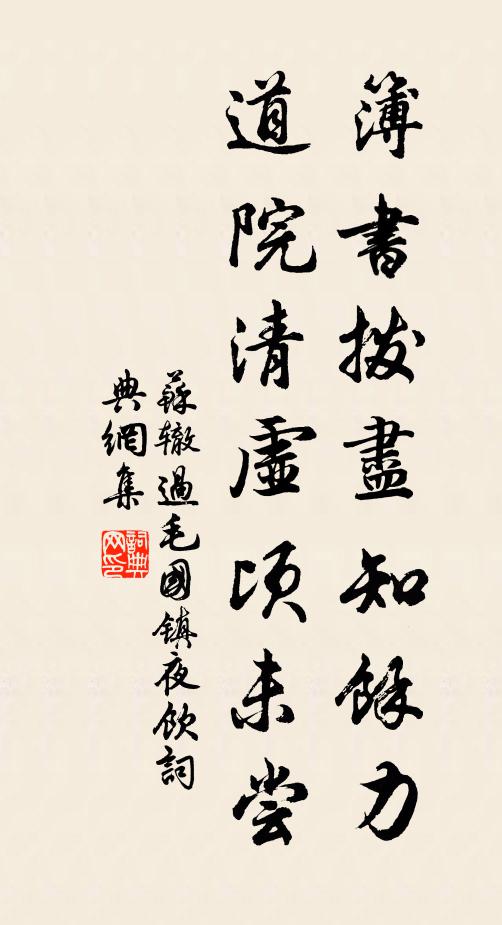 簿書拨盡知餘力
道院清虛頃未尝
蘇辙過毛國鎮夜飲詞
典網集
詞典网印